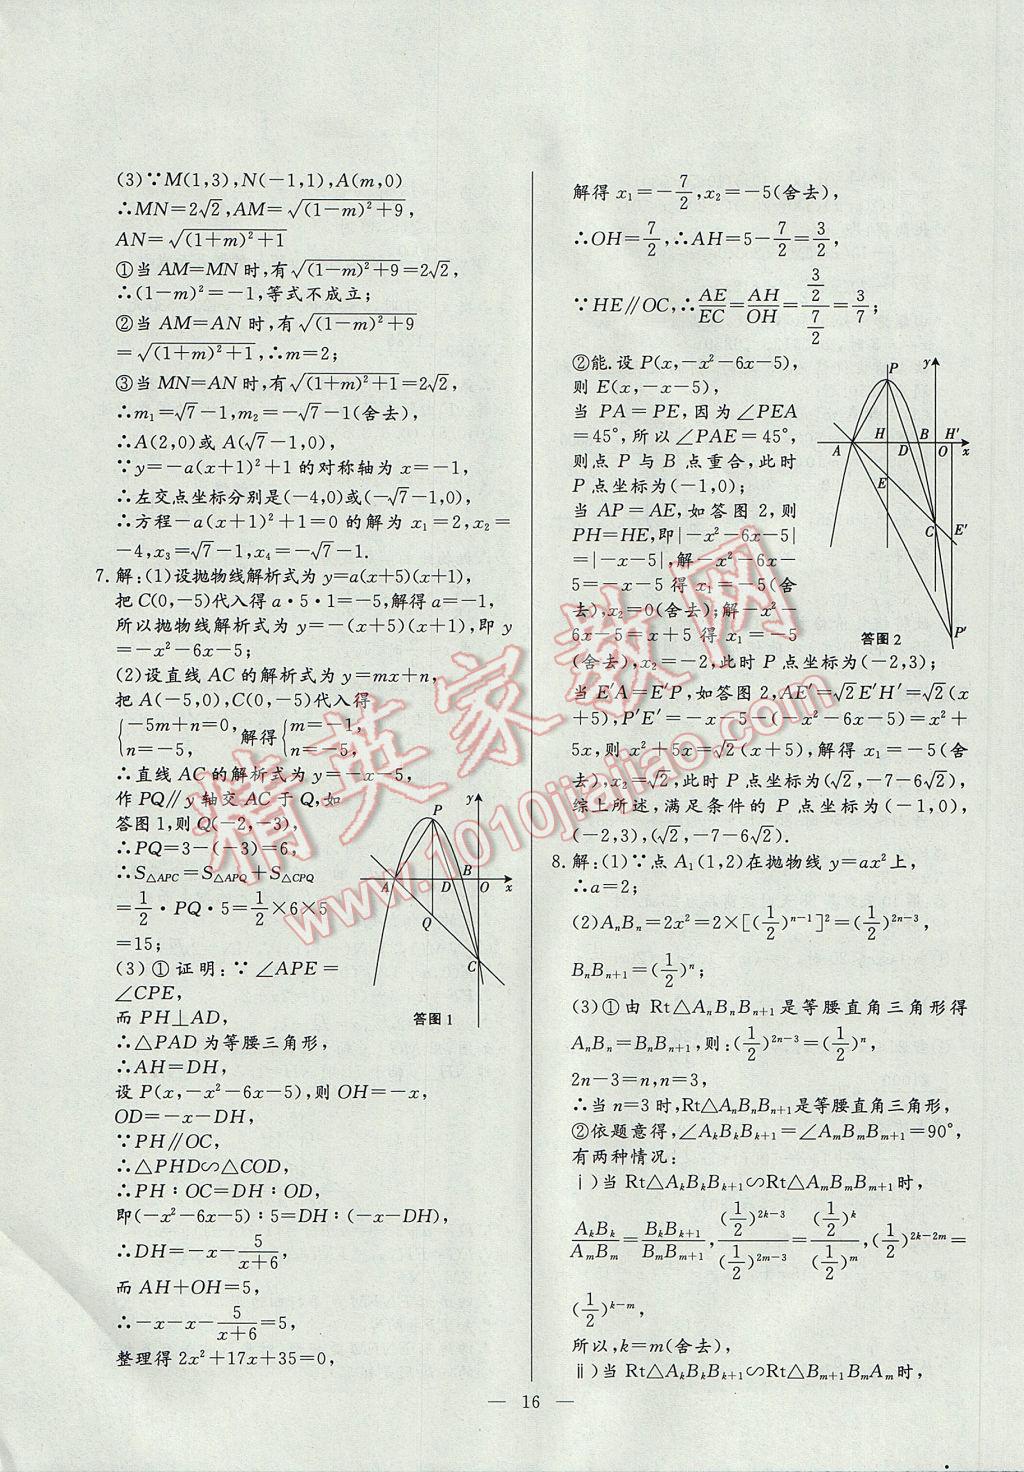 (3)∵M(1,3),N(−1,1),A(m,0)
∴MN=2√2,AM=√((1−m)²+9),
AN=√((1+m)²+1)
①当 AM=MN 时,有√((1−m)²+9)=2√2,
∴(1−m)²=−1,等式不成立;
②当 AM=AN 时,有√((1−m)²+9)
=√((1+m)²+1),∴m=2;
③当 MN=AN 时,有√((1+m)²+1)=2√2,
∴m₁=√7−1,m₂=−√7−1(舍去),
∴A(2,0)或 A(√7−1,0),
∵y=−a(x+1)²+1 的对称轴为 x=−1,
∴左交点坐标分别是(−4,0)或(−√7−1,0),
∴方程−a(x+1)²+1=0 的解为 x₁=2,x₂=
−4,x₃=√7−1,x₄=−√7−1.
7. 解:(1)设抛物线解析式为 y=a(x+5)(x+1),
把 C(0,−5)代入得 a·5·1=−5,解得 a=−1,
所以抛物线解析式为 y=−(x+5)(x+1),即 y
=−x²−6x−5;
(2)设直线 AC 的解析式为 y=mx+n,
把 A(−5,0),C(0,−5)代入得
{−5m+n=0, n=−5, 解得 {m=−1, n=−5,
∴直线 AC 的解析式为 y=−x−5,
作 PQ∥y 轴交 AC 于 Q,如
答图 1,则 Q(−2,−3),
∴PQ=3−(−3)=6,
∴S△APC=S△APQ+S△CPQ
=1/2·PQ·5=1/2×6×5
=15;
(3)①证明:∵∠APE=
∠CPE,
而 PH⊥AD,
∴△PAD 为等腰三角形,
∴AH=DH,
设 P(x,−x²−6x−5),则 OH=−x,
OD=−x−DH,
∵PH∥OC,
∴△PHD∽△COD,
∴PH∶OC=DH∶OD,
即(−x²−6x−5)∶5=DH∶(−x−DH),
∴DH=−x−5/(x+6),
而 AH+OH=5,
∴−x−x−5/(x+6)=5,
整理得 2x²+17x+35=0,
y
P
A
D
B
O
x
Q
C
答图 1
解得 x₁=−7/2,x₂=−5(舍去),
∴OH=7/2,∴AH=5−7/2=3/2,
∵HE∥OC,∴AE/EC=AH/OH=(3/2)/(7/2)=3/7;
②能.设 P(x,−x²−6x−5),
则 E(x,−x−5),
当 PA=PE,因为∠PEA
=45°,所以∠PAE=45°,
则点 P 与 B 点重合,此时
P 点坐标为(−1,0);
当 AP=AE,如答图 2,则
PH=HE,即|−x²−6x−5|
=|−x−5|,解−x²−6x−
5=−x−5 得 x₁=−5(舍
去),x₂=0(舍去);解−x²−
6x−5=x+5 得 x₁=−5
(舍去),x₂=−2,此时 P 点坐标为(−2,3);
当 E′A=E′P,如答图 2,AE′=√2E′H′=√2(x
+5),P′E′=−x−5−(−x²−6x−5)=x²+
5x,则 x²+5x=√2(x+5),解得 x₁=−5(舍
去),x₂=√2,此时 P 点坐标为(√2,−7−6√2),
综上所述,满足条件的 P 点坐标为(−1,0),
(−2,3),(√2,−7−6√2).
y
P
A
H
D
B
O
H′
x
E
C
E′
P′
答图 2
8. 解:(1)∵点 A₁(1,2)在抛物线 y=ax²上,
∴a=2;
(2)AₙBₙ=2x²=2×[(1/2)ⁿ⁻¹]²=(1/2)²ⁿ⁻³,
BₙBₙ₊₁=(1/2)ⁿ;
(3)①由 Rt△AₙBₙBₙ₊₁是等腰直角三角形得
AₙBₙ=BₙBₙ₊₁,则:(1/2)²ⁿ⁻³=(1/2)ⁿ,
2n−3=n,n=3,
∴当 n=3 时,Rt△AₙBₙBₙ₊₁是等腰直角三角形,
②依题意得,∠AₖBₖBₖ₊₁=∠AₘBₘBₘ₊₁=90°,
有两种情况:
ⅰ)当 Rt△AₖBₖBₖ₊₁∽Rt△AₘBₘBₘ₊₁时,
AₖBₖ/AₘBₘ=BₖBₖ₊₁/BₘBₘ₊₁,(1/2)²ᵏ⁻³/(1/2)²ᵐ⁻³=(1/2)ᵏ/(1/2)ᵐ,(1/2)²ᵏ⁻²ᵐ=
(1/2)ᵏ⁻ᵐ,
所以,k=m(舍去),
ⅱ)当 Rt△AₖBₖBₖ₊₁∽Rt△Bₘ₊₁BₘAₘ时,
— 16 —
精英家教网
www.1010jiajiao.com